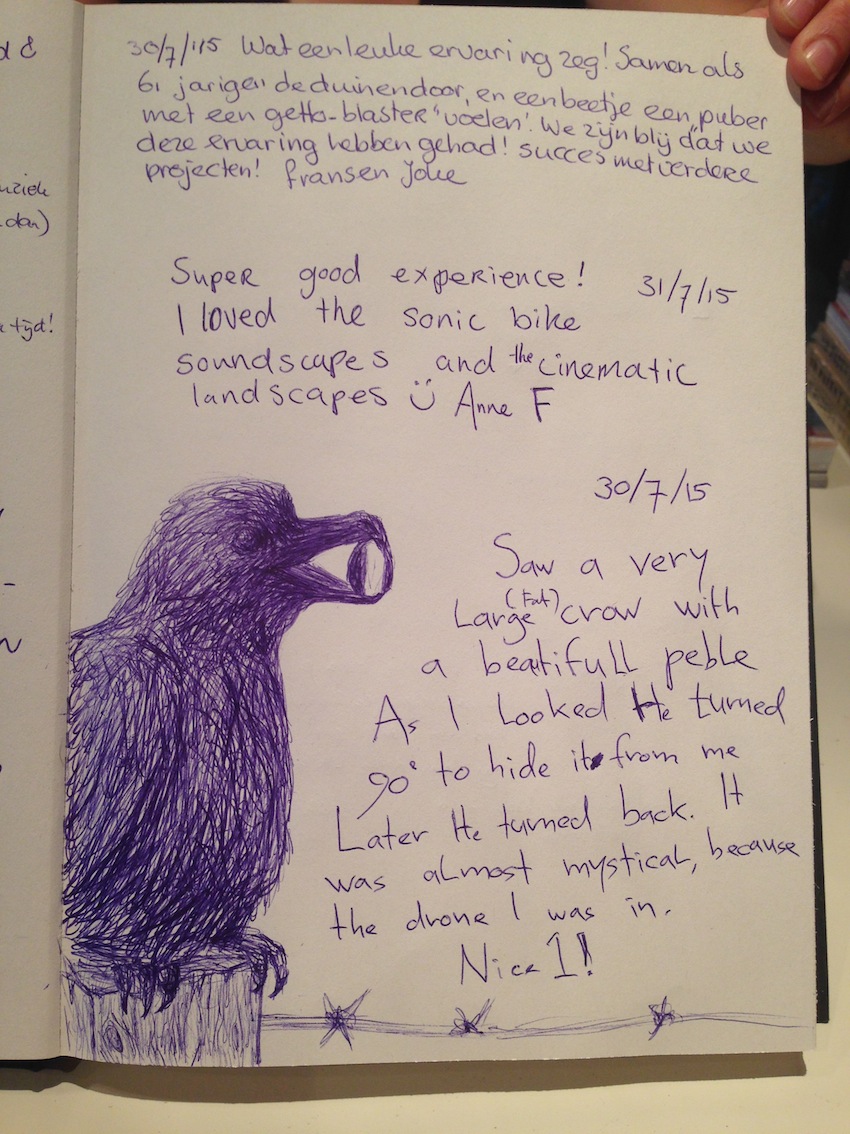 d &
uziek
dan)
tijd!
30/7/'15 Wat een leuke ervaring zeg! Samen als
61 jariger de duinen door, en een beetje een puber
met een getto-blaster 'voelen'. We zijn blij dat we
deze ervaring hebben gehad! succes met verdere
projecten! fransen Joke
Super good experience! 31/7/15
I loved the sonic bike
soundscapes and the cinematic
landscapes Ü Anne F
30/7/15
Saw a very
Large (Fat) crow with
a beatifull peble
As I Looked He turned
90° to hide it from me
Later He turned back. It
was almost mystical, because
the drone I was in.
Nice 1!